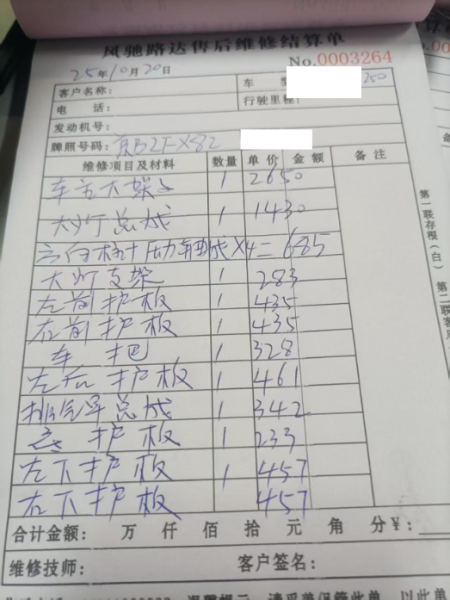 风驰路达售后维修结算单
No.0003264
25年10月20日
客户名称: 车 型 250
电 话: 行驶里程:
发动机号:
牌照号码: 京B2FX82
维修项目及材料 数量 单价 金额 备注
车 大架 1 2650
大灯总成 1 1430
方向柱 ×4= 685
大灯支架 1 283
左前护板 1 435
右前护板 1 435
车把 1 328
左后护板 1 461
排气 总成 1 342
护板 1 233
左下护板 1 457
右下护板 457
合计金额: 万 仟 佰 拾 元 角 分¥:
维修技师: 客户签名:
第一联存根(白)
第二联客